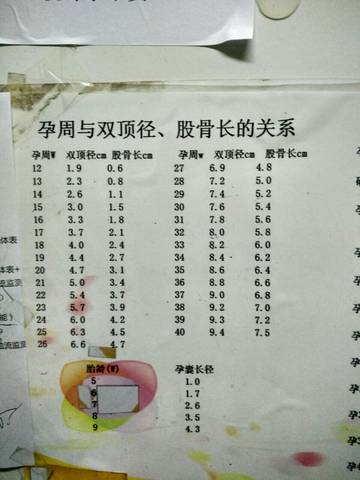 孕周与双顶径、股骨长的关系
孕周W 双顶径cm 股骨长cm 孕周w 双顶径cm 股骨长cm
12 1.9 0.6 27 6.9 4.8
13 2.3 0.8 28 7.2 5.0
14 2.6 1.1 29 7.4 5.2
15 3.0 1.5 30 7.6 5.4
16 3.3 1.8 31 7.8 5.6
17 3.7 2.1 32 8.0 5.8
18 4.0 2.4 33 8.2 6.0
19 4.4 2.7 34 8.4 6.2
20 4.7 3.1 35 8.6 6.4
21 5.0 3.4 36 8.8 6.6
22 5.4 3.7 37 9.0 6.8
23 5.7 3.9 38 9.2 7.0
24 6.0 4.2 39 9.3 7.2
25 6.3 4.5 40 9.4 7.5
26 6.6 4.7
胎龄(W) 孕囊长径
5 1.0
6 1.7
7 2.6
8 3.5
9 4.3